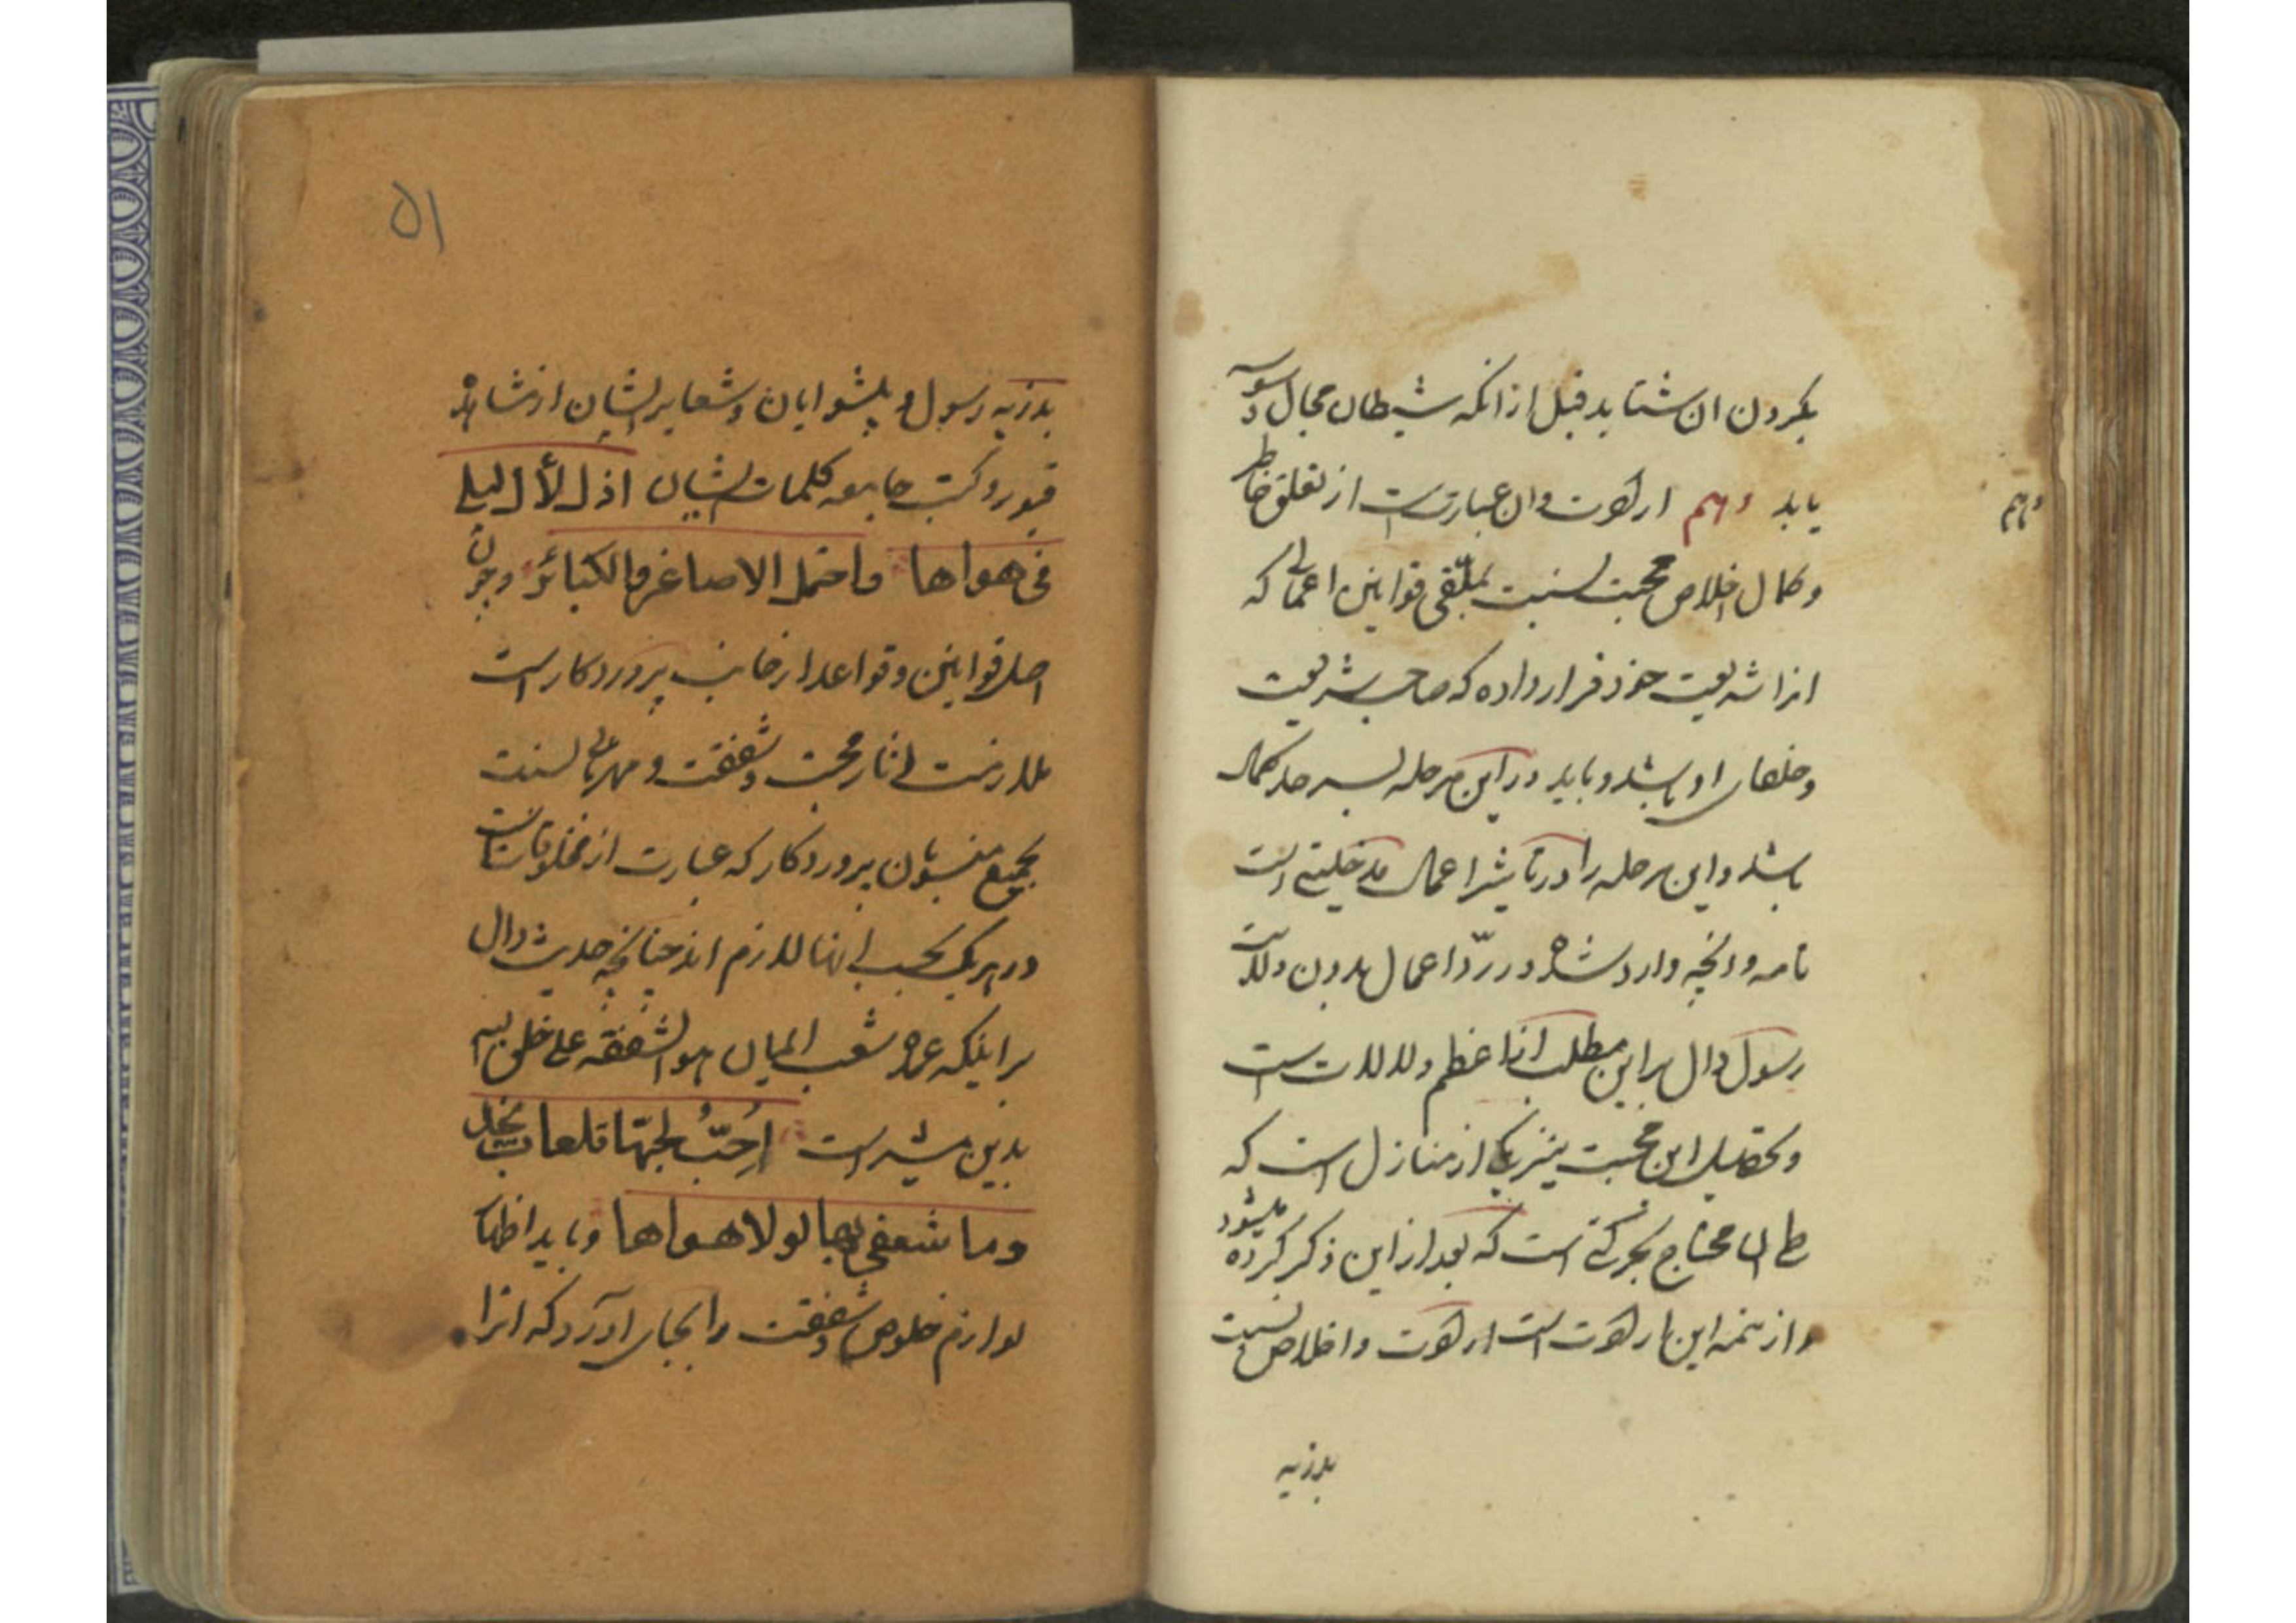 بکردن ان شتابد قبل از انکه شیطان مجال وسوسه
یابد دهم ارادت و ان عبارتست از تعلق خاطر
دهم
و کمال اخلاص و محبت نسبت بملقی قوانین اعمالی که
انرا شریعت خود قرار داده که صاحب شریعت
و خلفای او باشد و باید در این مرحله بسر حد کمال
باشد و این مرحله را در تاثیر اعمال مدخلیتی است
تامه و انچه وارد شده در ردّ اعمال بدون ولایت
رسول دال بر این مطلب انا اعظم دلالات است
و تحصیل این محبت نیز یکی از منازل است که
طی ان محتاج بحرکتی است که بعد از این ذکر کرده میشود
و از تتمه این ارادتست ارادت و اخلاص نسبت
بذریه
۵۱
بذریه رسول و پیشوایان و شعایر ایشان از مشاهد
قبور و کتب جامعه کلمات ایشان اذل لآل لیلی
فی هواها و احتمل الاصاغر و الکبائر و چون
اصل قوانین و قواعد از جانب پروردکار است
لازمست اثار محبت و شفقت و مهربانی نسبت
بجمیع منسوبان پروردکار که عبارت از مخلوقاتست
در هر یک بحسب انها لازم اند چنانچه حدیث دال
بر اینکه عمده شعب ایمان هو الشفقة علی خلق الله
بدین مشیر است اُحِبُّ بحبّها تلعات نجد
وما شعفی بها لولا هواها و باید اظهار
لوازم خلوص و شفقت را بجای آورد که انرا